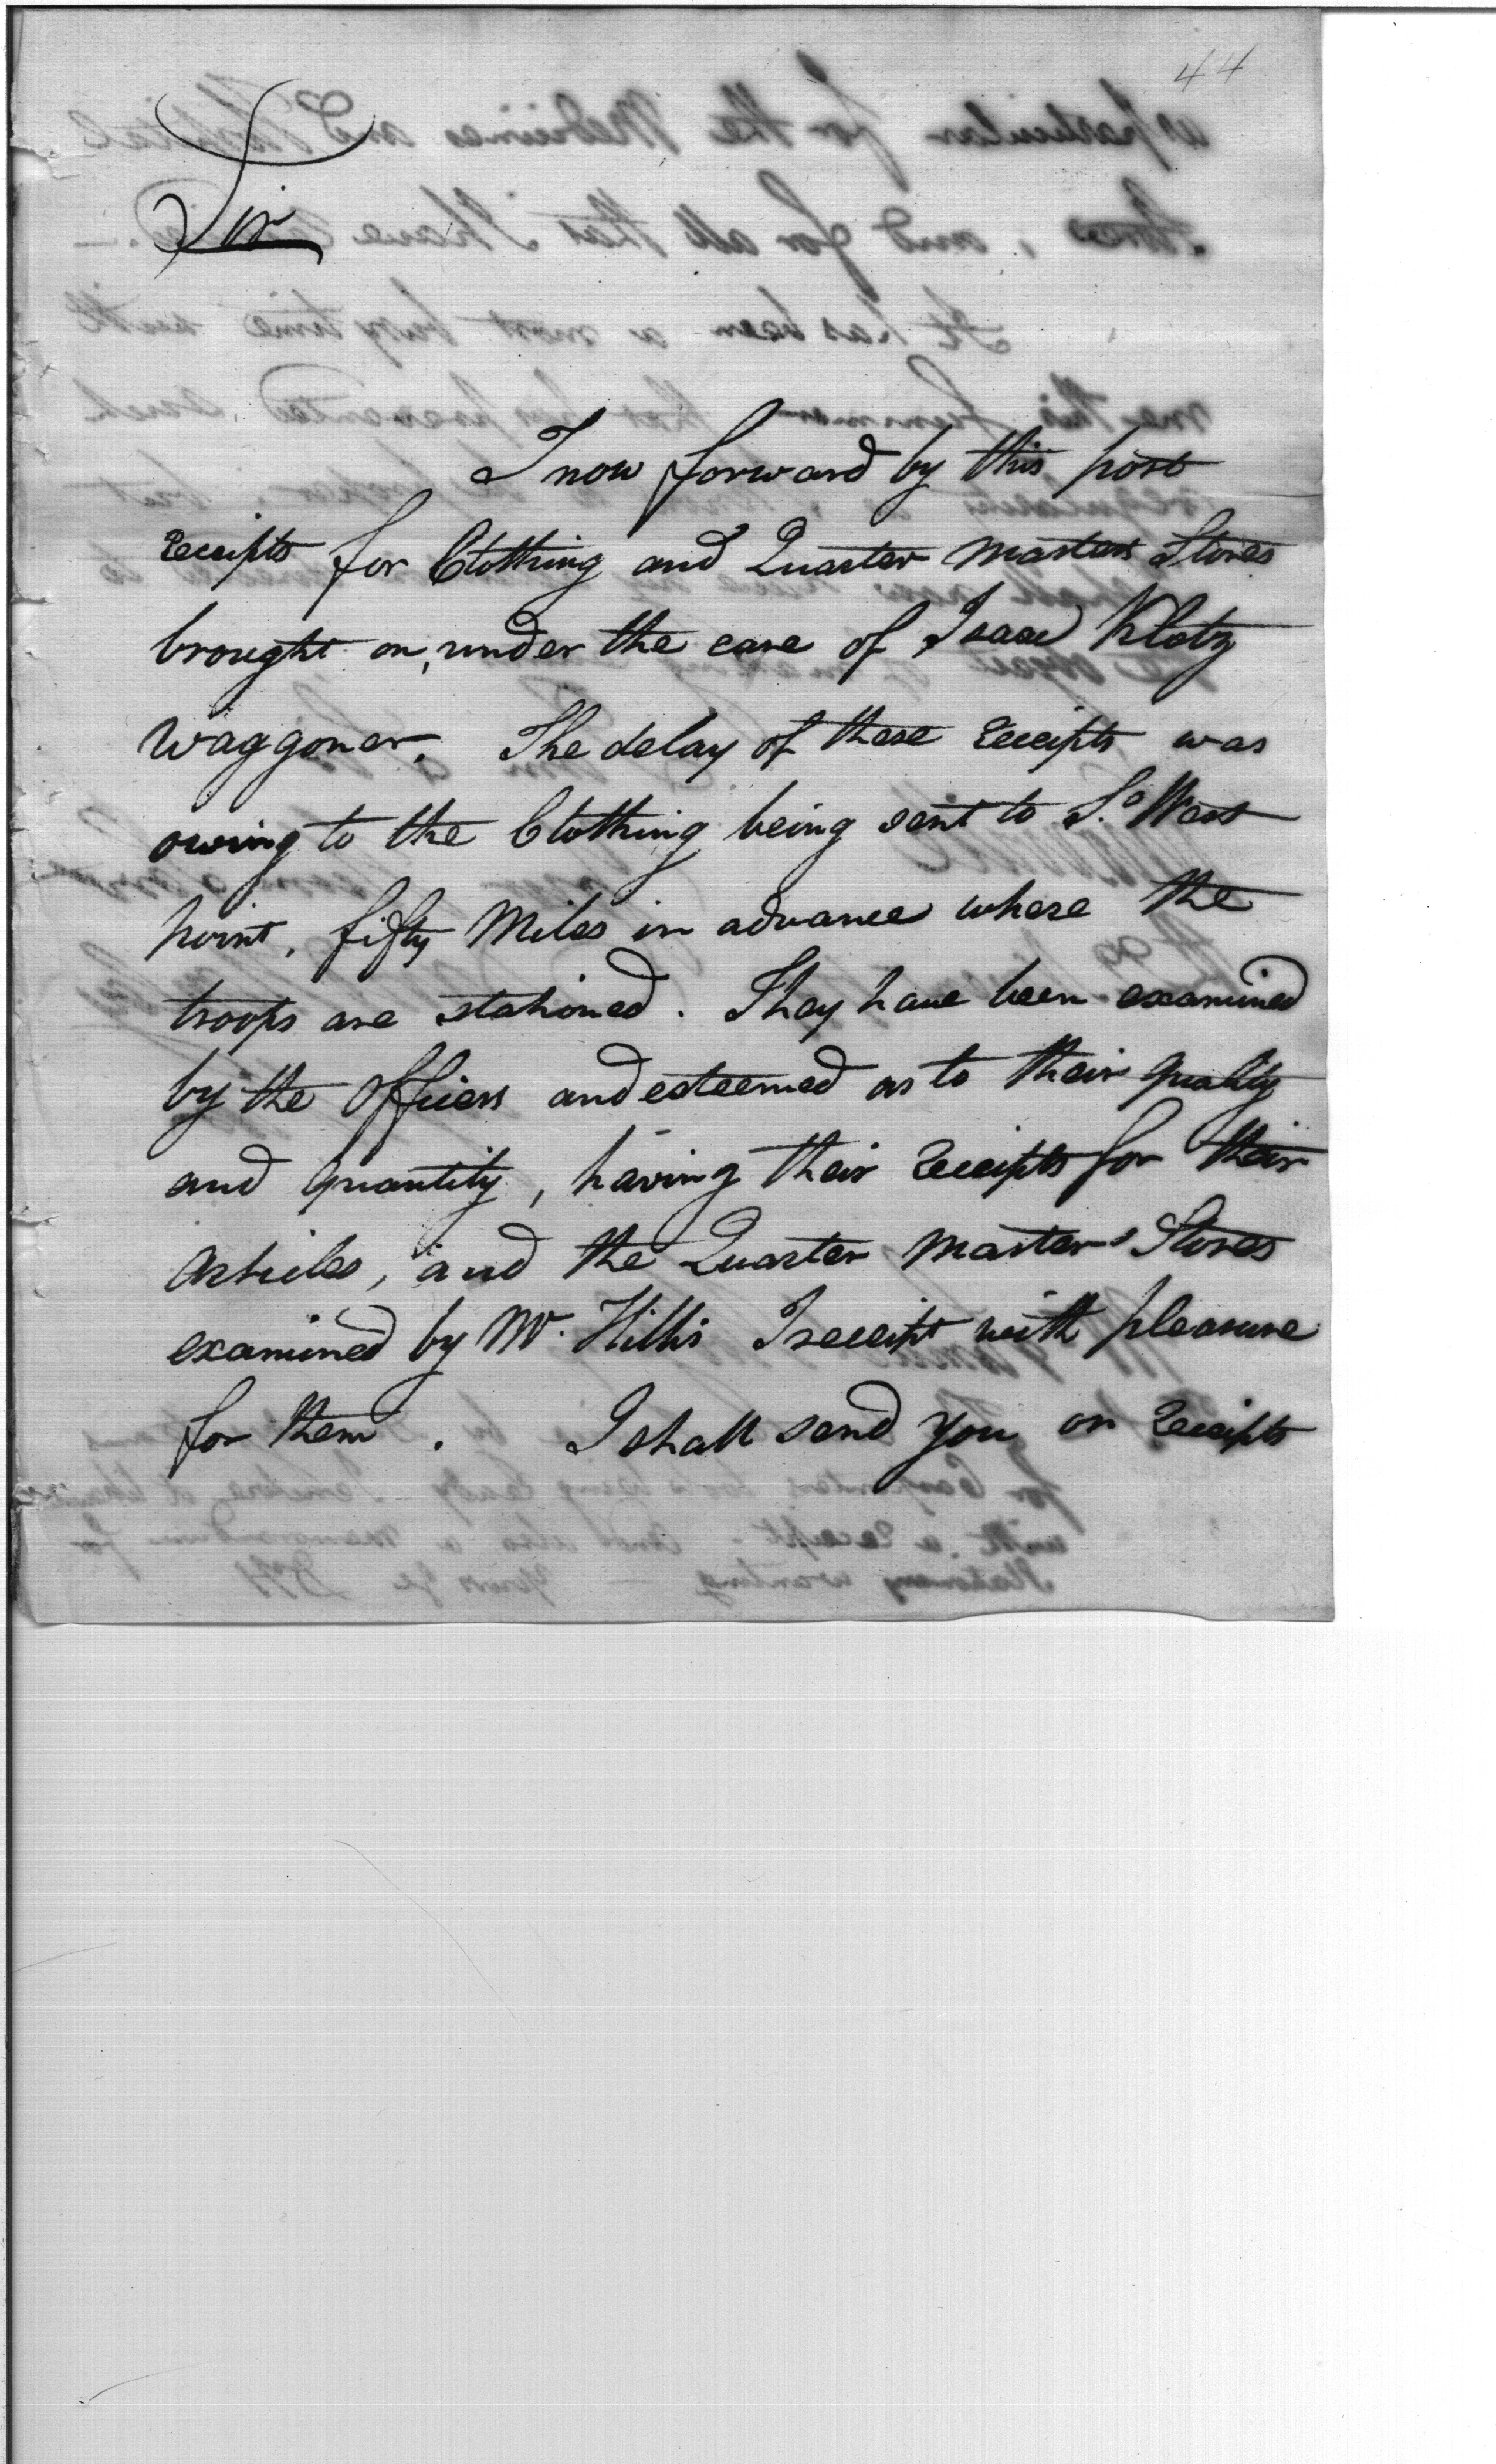 44
Sir
I now forward by this post
receipts for Clothing and Quarter Masters Stores
brought on, under the care of Isaac Klotz
Waggoner. The delay of these receipts was
owing to the Clothing being sent to So. West
point, fifty Miles in advance where the
troops are stationed. They have been examined
by the Officers and esteemed as to their quality
and quantity, having their receipts for their
Articles, and the Quarter Masters Stores
examined by Mr. Hillis I receipt with pleasure
for them. I shall send you on receipts